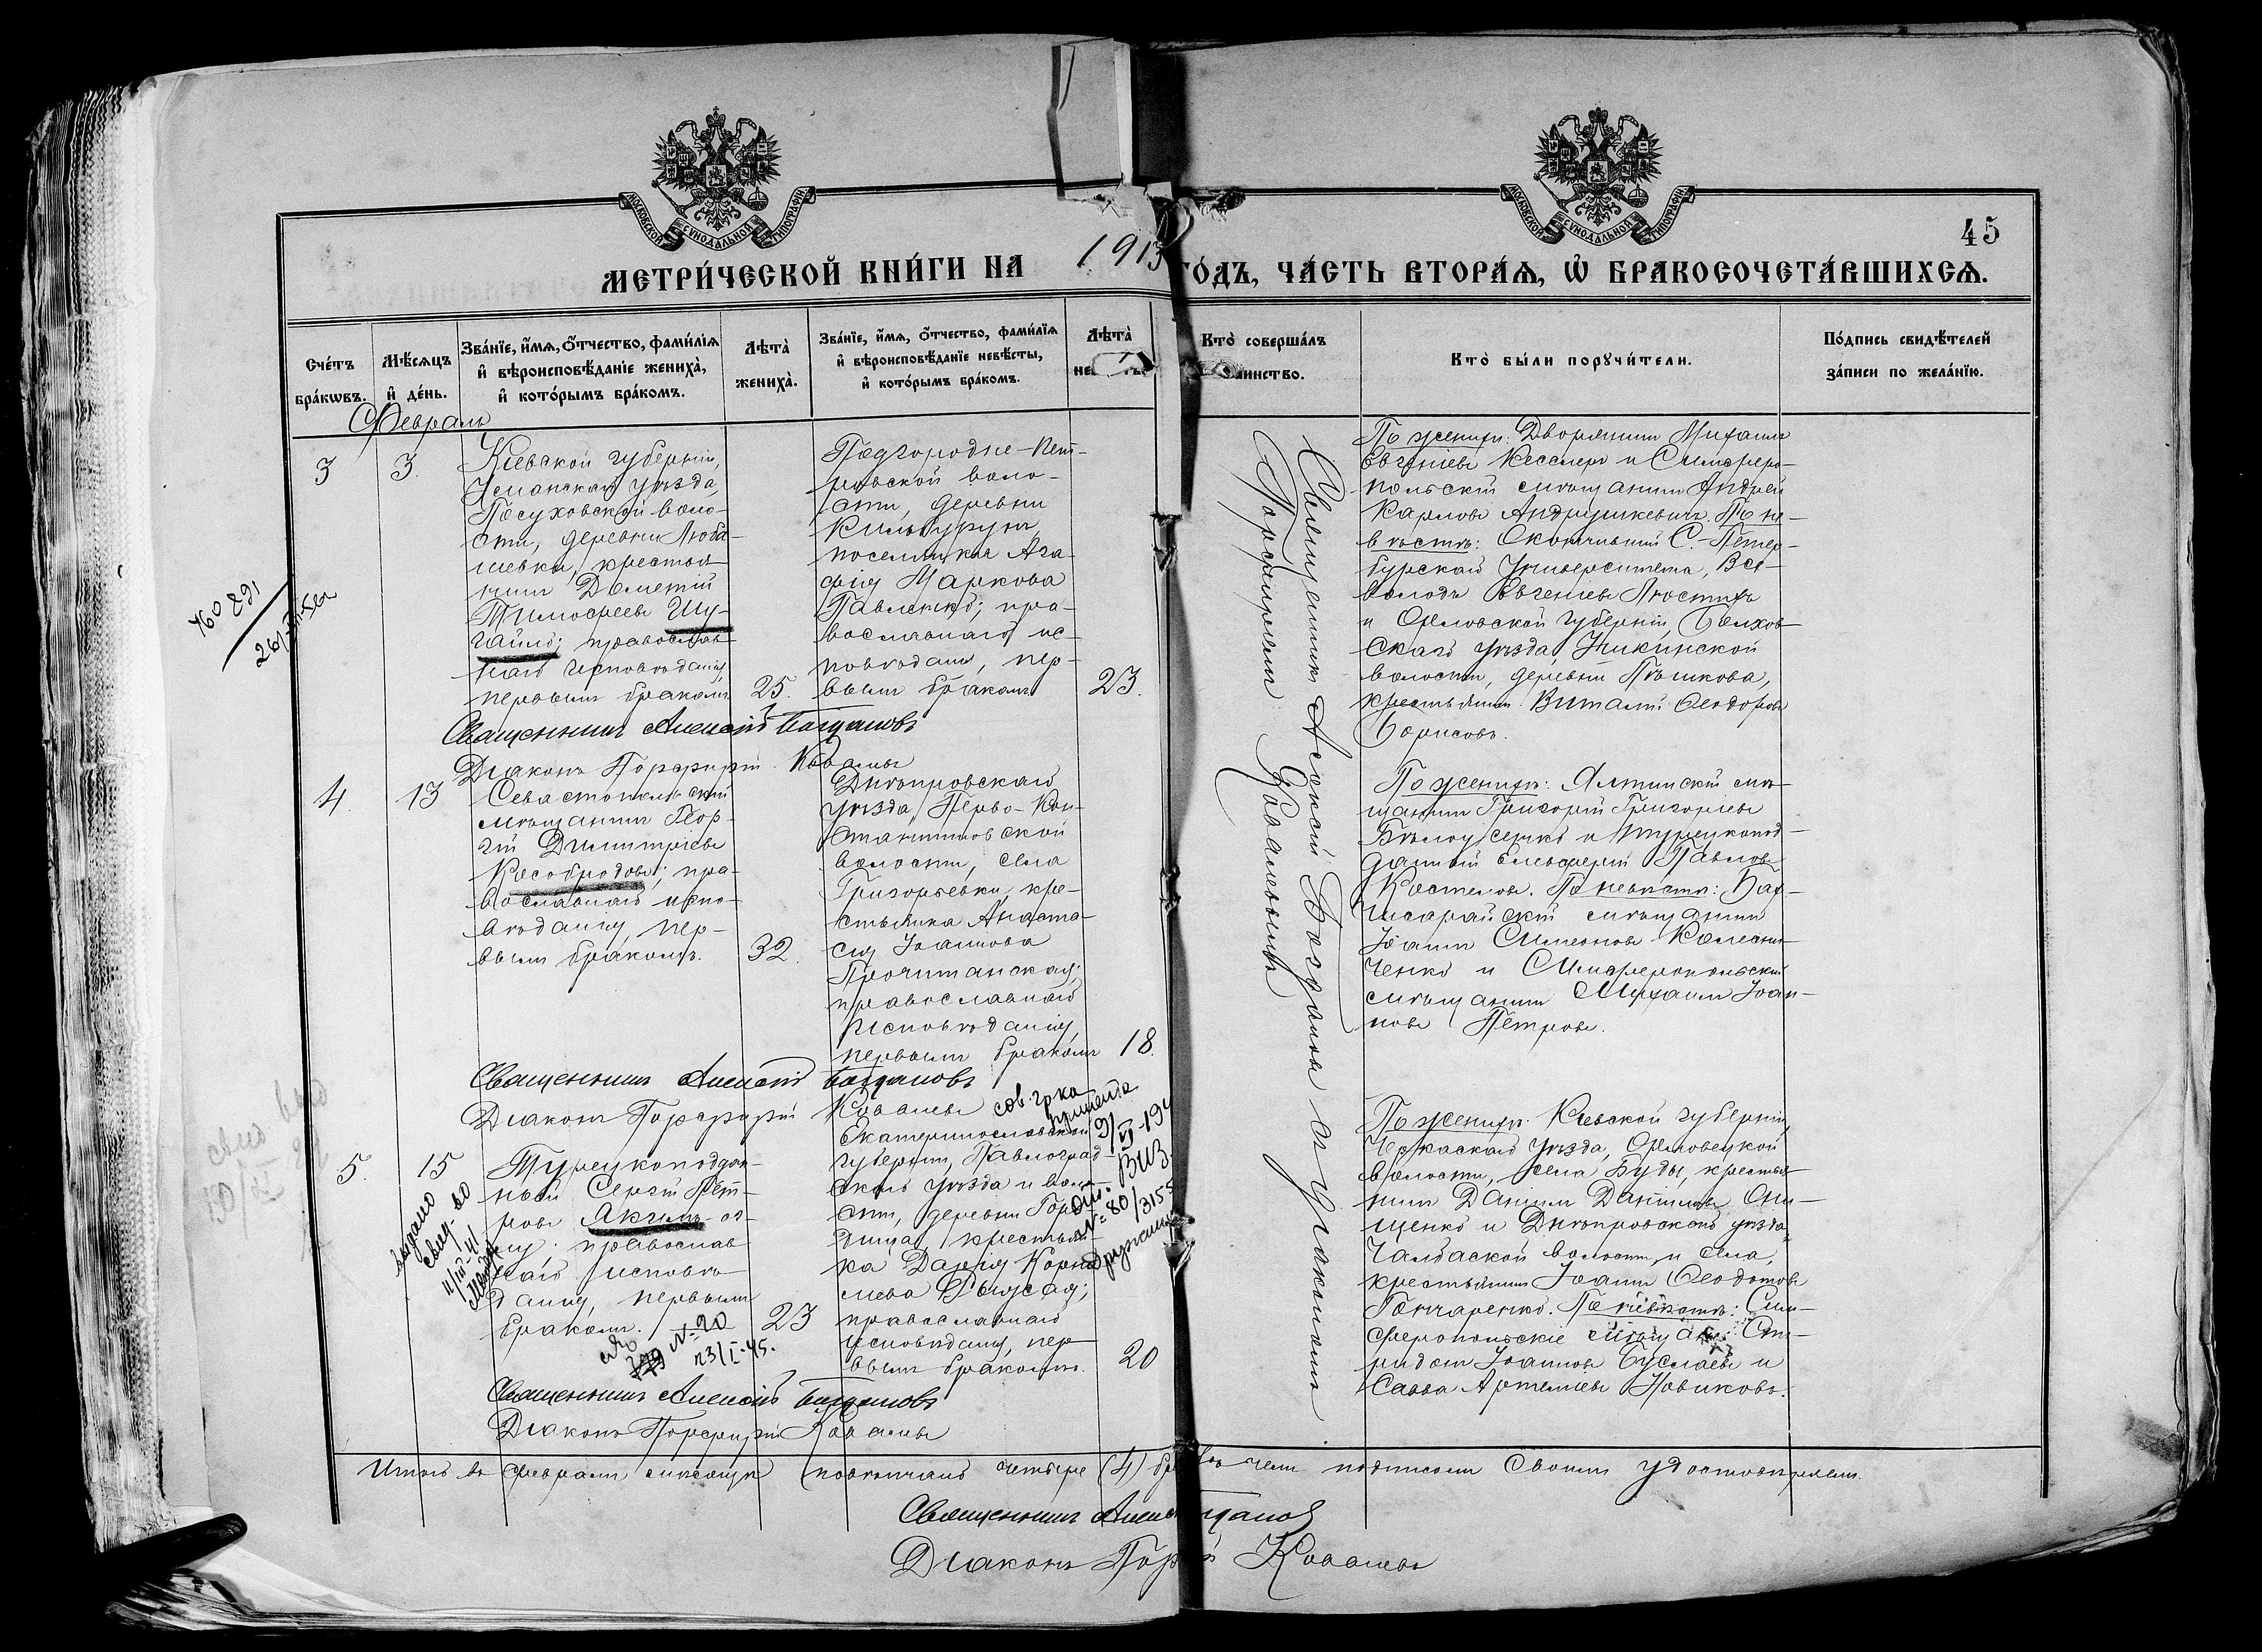 МОСКОВСКОЙ СѴНОДАЛЬНОЙ ТИПОГРАФІИ
МОСКОВСКОЙ СѴНОДАЛЬНОЙ ТИПОГРАФІИ
45
МЕТРИ́ЧЕСКОЙ КНИ́ГИ НА 1913 ГО́ДЪ, ЧА́СТЬ ВТОРА́Ѧ, Ѡ БРАКОСОЧЕТА́ВШИХСѦ.
Сче́тъ бра́кѡвъ.
Мѣ́сяцъ и де́нь.
Зва́нїе, и́мѧ, ѻ́тчество, фами́лїѧ
и вѣроисповѣ́данїе жениха̀,
и кото́рымъ бра́комъ.
Лѣта̀ жениха̀.
Зва́нїе, и́мѧ, ѻ́тчество, фами́лїѧ
и вѣроисповѣ́данїе невѣ́сты,
и кото́рымъ бра́комъ.
Лѣта̀
Кто̀ соверша́лъ
Кто̀ бы́ли порꙋчи́тели.
По́дпись свидѣ́телей
за́писи по жела́нїю.
Февраль
3
3.
Кіевской губерніи,
Уманскаго уѣзда,
Посуховской воло-
сти, деревни Люба-
шевки, крестья-
нинъ Дометій
Тимофеевъ Шу-
гайло; православ-
наго исповѣданія,
первымъ бракомъ
25.
Подгородне-Пет-
ровской воло-
сти, деревни
Кильбурунъ
поселянка Ага-
фія Маркова
Павленко; пра-
вославнаго ис-
повѣданія, пер-
вымъ бракомъ
23.
По женихѣ: Дворянинъ Михаилъ
Евгеніевъ Кесслеръ и Симферо-
польскій мѣщанинъ Андрей
Карловъ Андрушкевичъ. По не-
вѣстѣ: Окончившій С.-Петер-
бургскаго Университета, Все-
володъ Евгеніевъ Люстихъ
и Орловской губерніи, Болхов-
скаго уѣзда, Никинской
волости, деревни Пѣшкова,
крестьянинъ Виталій Ѳеодоровъ
Борисовъ.
Священникъ Алексій Богдановъ
Діаконъ Порфирій Ковалевъ
4.
13
Севастопольскій
мѣщанинъ Геор-
гій Димитріевъ
Кособродовъ; пра-
вославнаго испо-
вѣданія, пер-
вымъ бракомъ.
32.
Днѣпровскаго
уѣзда, Перво-Кон-
стантиновской
волости, села
Григорьевки, кре-
стьянка Анаста-
сія Іоаннова
Прочитанская;
православнаго
исповѣданія,
первымъ бракомъ
18.
По женихѣ: Ялтинскій мѣ-
щанинъ Григорій Григоріевъ
Бѣлоусенко и турецкопод-
данный Елевферій Павловъ
Костеловъ. По невѣстѣ: Бах-
чисарайскій мѣщанинъ
Іоаннъ Симеоновъ Колесни-
ченко и Симферопольскій
мѣщанинъ Михаилъ Іоан-
новъ Петровъ.
Священникъ Алексій Богдановъ
Діаконъ Порфирій Ковалевъ
5.
15
Турецкоподдан-
ный Сергій Пет-
ровъ Акчилъ-ог-
лу; православ-
наго исповѣ-
данія, первымъ
бракомъ.
23
Екатеринославской
губерніи, Павлоград-
скаго уѣзда и воло-
сти, деревни Горо-
дища, крестьян-
ка Дарія Корни-
лиева Рыжая;
православнаго
исповѣданія, пер-
вымъ бракомъ.
20
По женихѣ: Кіевской губерніи,
Черкаскаго уѣзда, Орловецкой
волости, села Буды, крестья-
нинъ Даніилъ Даніиловъ Они-
щенко и Днѣпровскаго уѣзда,
Чалбаской волости и села,
крестьянинъ Іоаннъ Ѳеодотовъ
Гончаренко. По невѣстѣ: Сим-
феропольскіе мѣщане: Спи-
ридонъ Іоанновъ Буслаевъ и
Савва Артеміевъ Новиковъ.
Священникъ Алексій Богдановъ
Діаконъ Порфирій Ковалевъ
Священникъ Алексій Богдановъ съ діакономъ
Порфиріемъ Ковалевымъ
460891
выдано
свид-во
11/III-41
№-20
23/I-45.
сов. гр-ка
ВИЗ.
№=80/3155
Итого въ февралѣ мѣсяцѣ повѣнчано четыре (4) въ чемъ подписомъ своимъ удостовѣряемъ.
Священникъ Алекс
Діаконъ Пор Ковалевъ